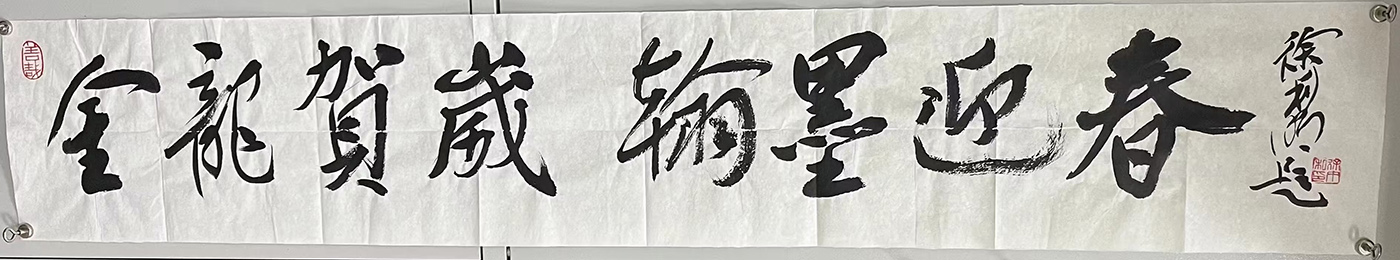 金龍賀歲 翰墨迎春
徐利明題